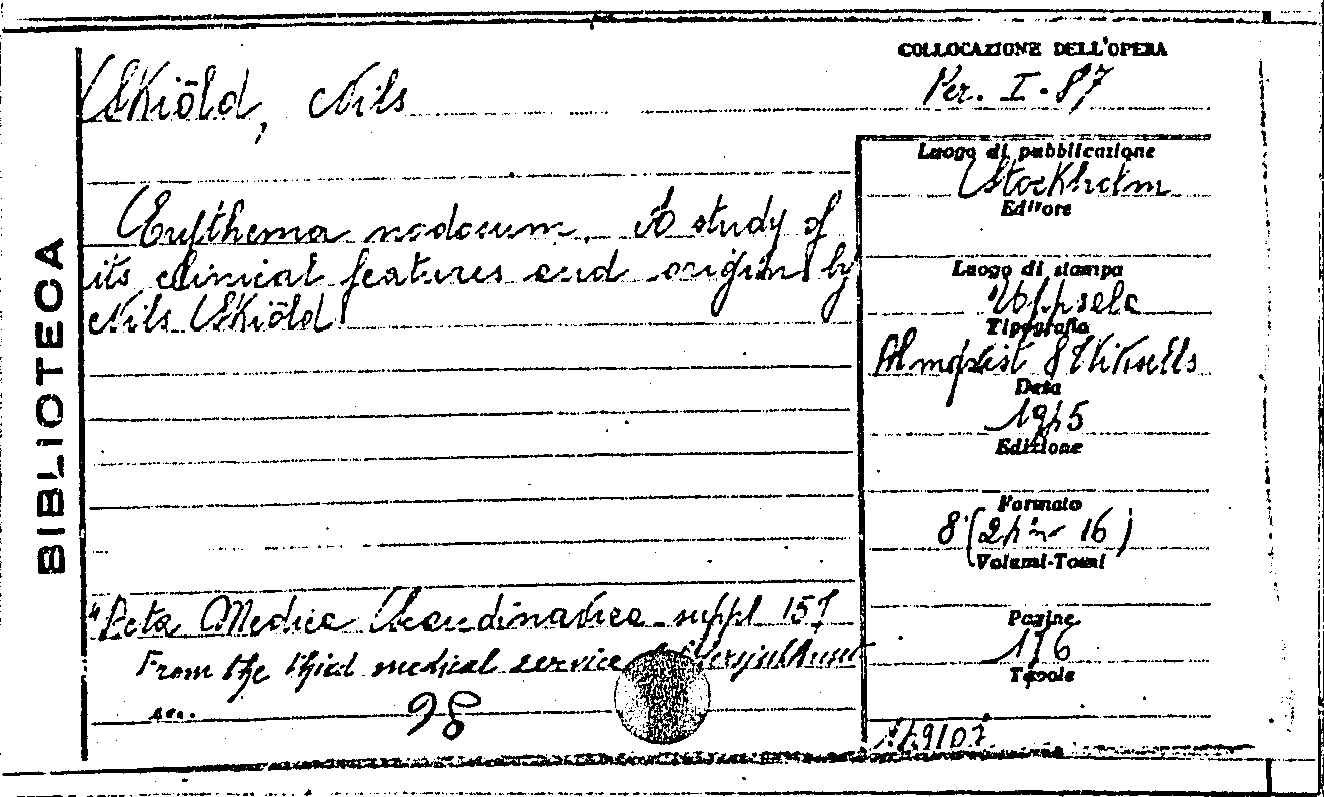 COLLOCAZIONE DELL'OPERA
Skiöld, Nils
Per. I-87
Luogo di pubblicazione
Stockholm
Editore
Erythema nodosum. A study of
its clinical features and origin by
Nils Skiöld
Luogo di stampa
Uppsala
Tipografia
Almqvist & Wiksells
Data
1945
Edizione
Formato
8°(24 16)
Volumi-Tomi
"Acta Medica Scandinavica suppl 157
Pagine
From the third medical service
Tavole
98
BIBLIOTECA